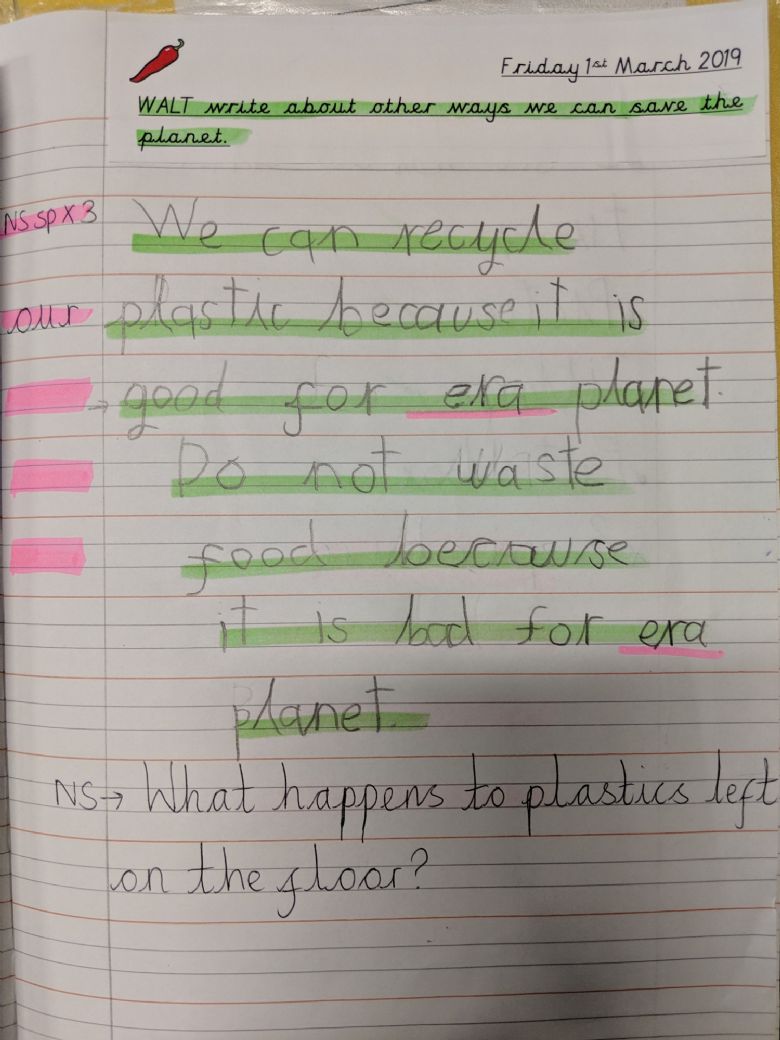 Friday 1st March 2019
WALT write about other ways we can save the
planet.
NS sp x 3
We can recycle
our
plastic because it is
→ good for era planet.
Do not waste
food because
it is bad for era
planet.
NS→ What happens to plastics left
on the floor?